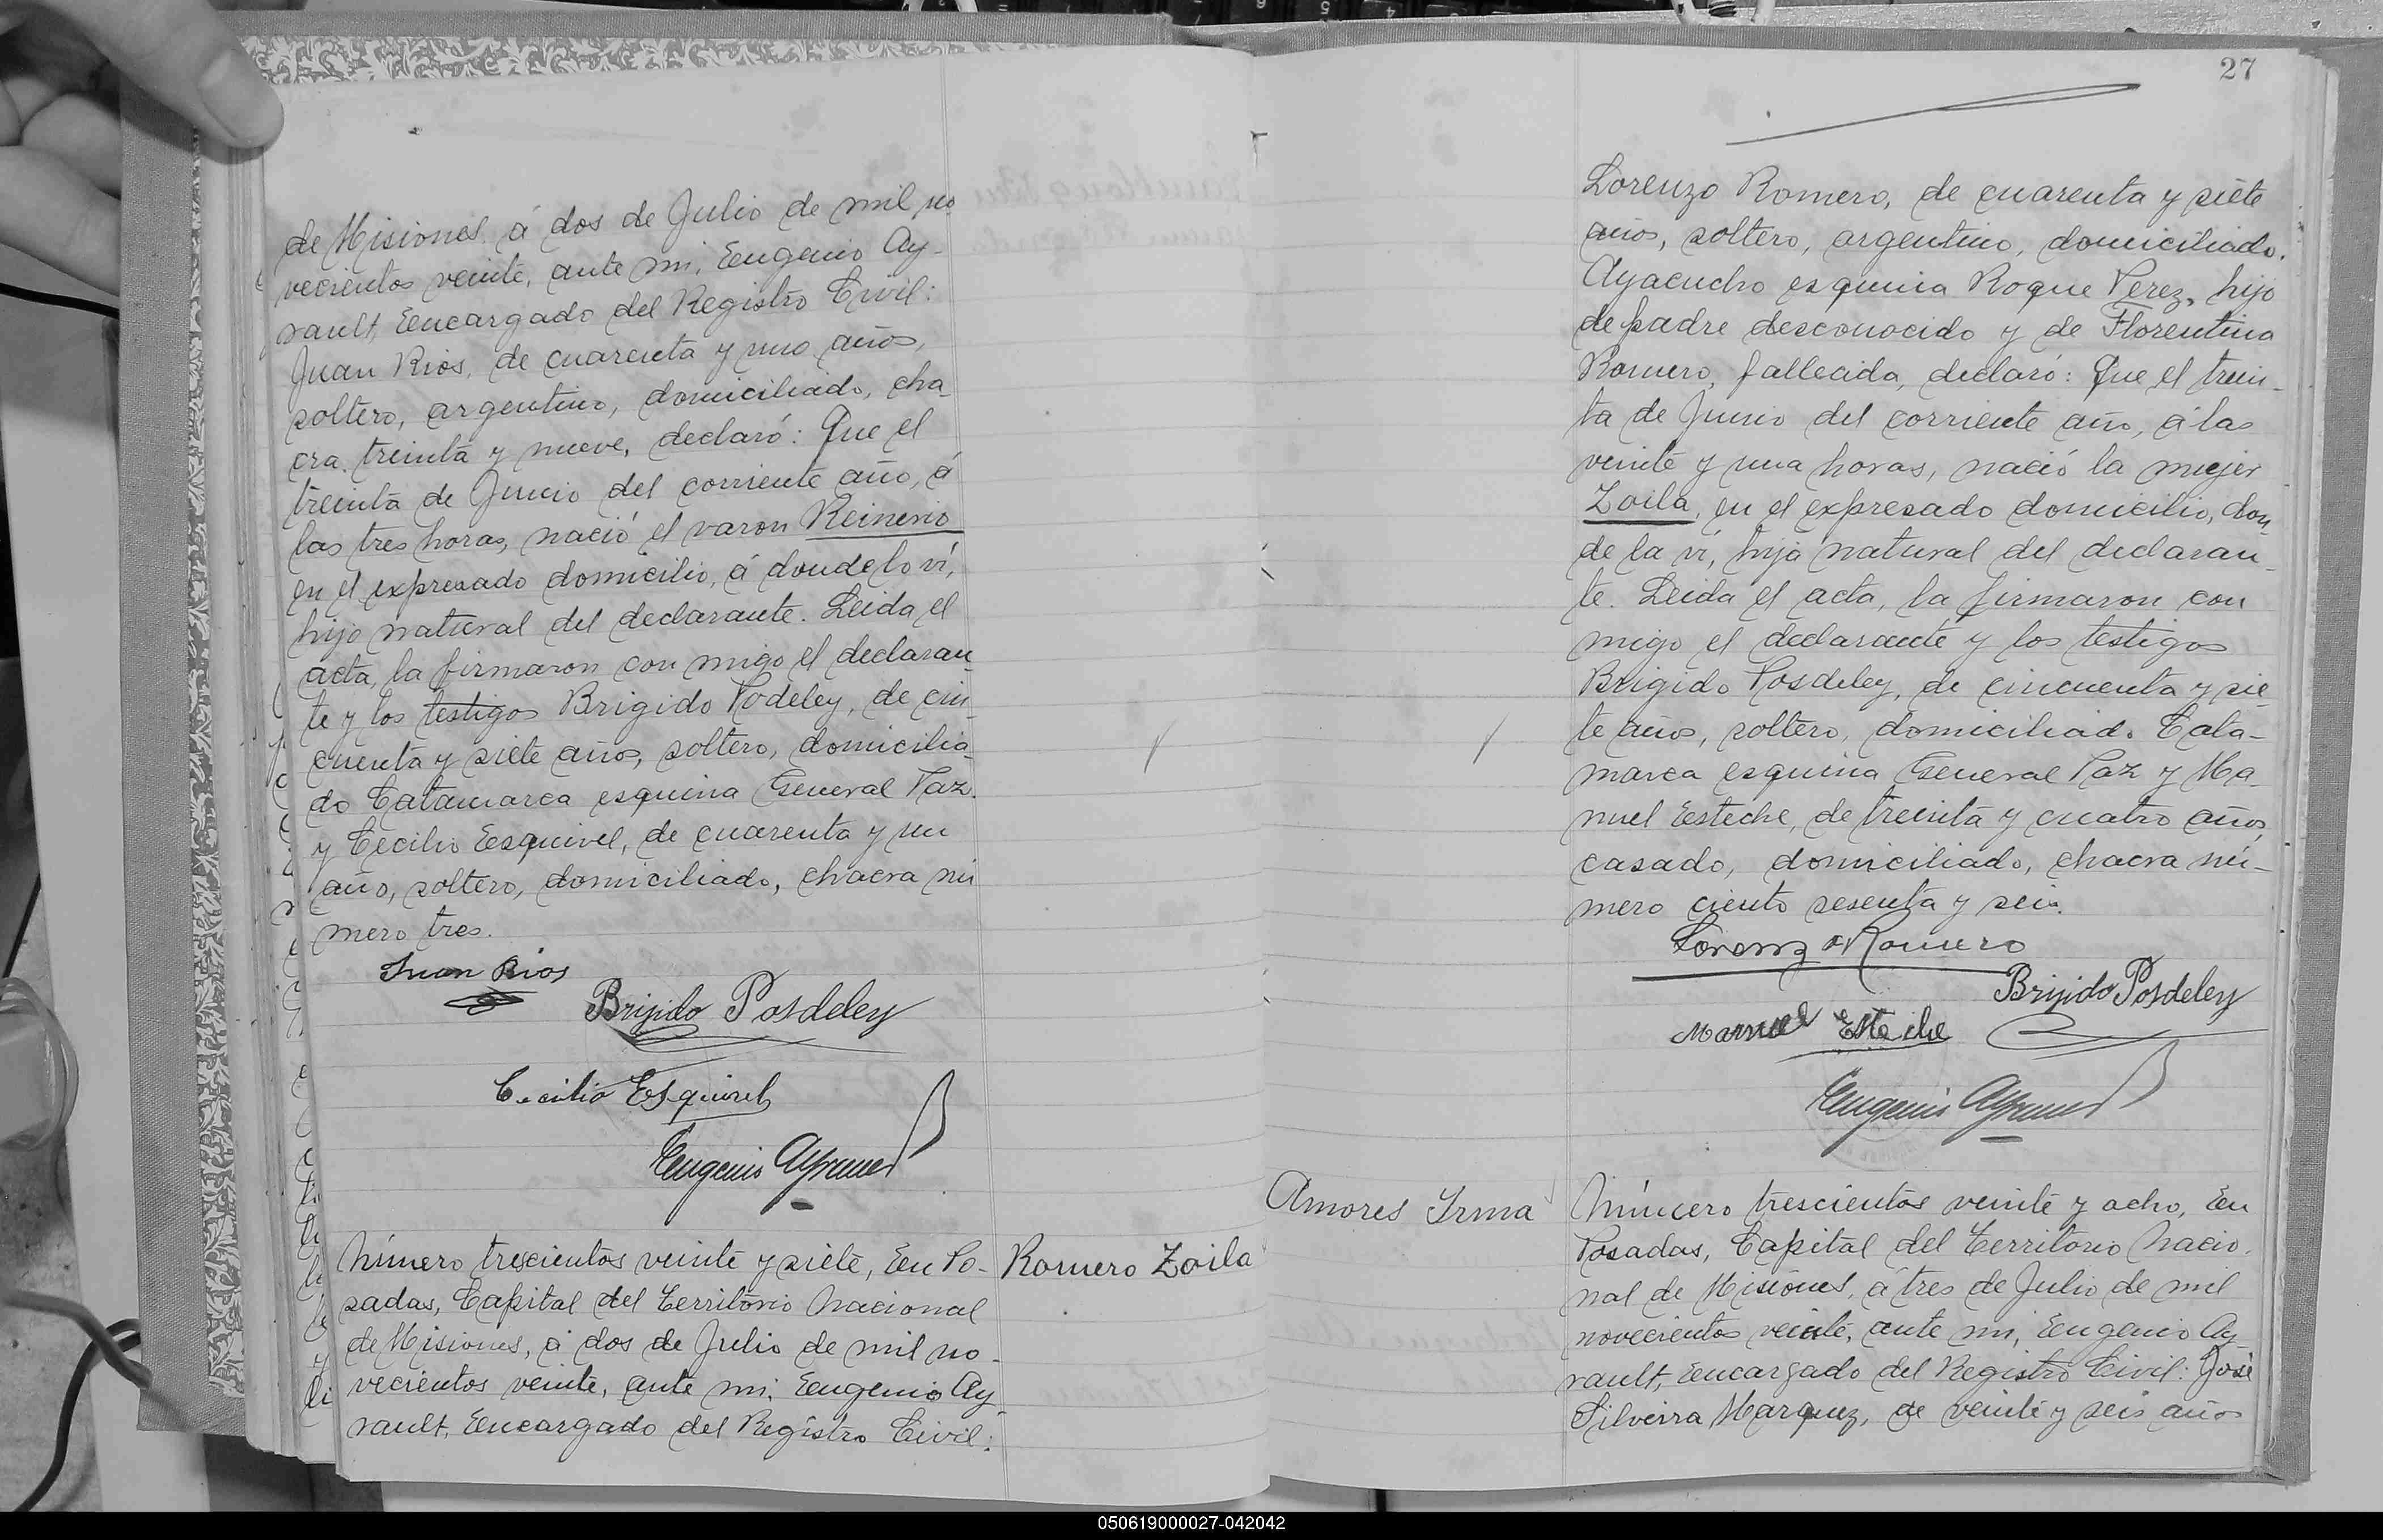 de Misiones á dos de Julio de mil no
vecientos veinte, ante mi, Eugenio Ay-
rault, Encargado del Registro Civil:
Juan Rios, de cuarenta y uno años,
soltero, argentino, domiciliado, cha
cra treinta y nueve, declaró: Que el
treinta de Junio del corriente año, á
las tres horas, nació el varon Reinerio
en el expresado domicilio, á donde lo ví,
hijo natural del declarante. Leida el
acta, la firmaron con migo el declaran
te y los testigos Brigido Podeley, de cin
cuenta y siete años, soltero, domicilia
do Catamarca esquina General Paz
y Cecilio Esquivel, de cuarenta y un
año, soltero, domiciliado, chacra nú
mero tres.
Juan Rios
Brijido Posdeley
Cecilio Esquivel
Eugenio Ayrault
Número trescientos veinte y siete, En Po-
Romero Zoila
sadas, Capital del Territorio Nacional
de Misiones, á dos de Julio de mil no-
vecientos veinte, ante mi, Eugenio Ay
rault, Encargado del Registro Civil:
27
Lorenzo Romero, de cuarenta y siete
años, soltero, argentino, domiciliado,
Ayacucho esquina Roque Perez, hijo
de padre desconocido y de Florentina
Romero, fallecida, declaró: Que el trein-
ta de Junio del corriente año, á las
veinte y una horas, nació la mujer
Zoila, en el expresado domicilio, don
de la ví, hija natural del declaran-
te. Leida el acta, la firmaron con
migo el declarante y los testigos
Brigido Posdeley, de cincuenta y sie
te años, soltero, domiciliado Cata-
marca esquina General Paz y Ma-
nuel Esteche, de treinta y cuatro años
casado, domiciliado, chacra nú-
mero ciento sesenta y seis.
Lorenzo Romero
Brijido Posdeley
Manuel Esteche
Eugenio Ayrault
Amores Irma
Número trescientos veinte y ocho, En
Posadas, Capital del Territorio Nacio-
nal de Misiones, á tres de Julio de mil
novecientos veinte, ante mi, Eugenio Ay
rault, Encargado del Registro Civil: José
Silveira Marquez, de veinte y seis años
050619000027-042042